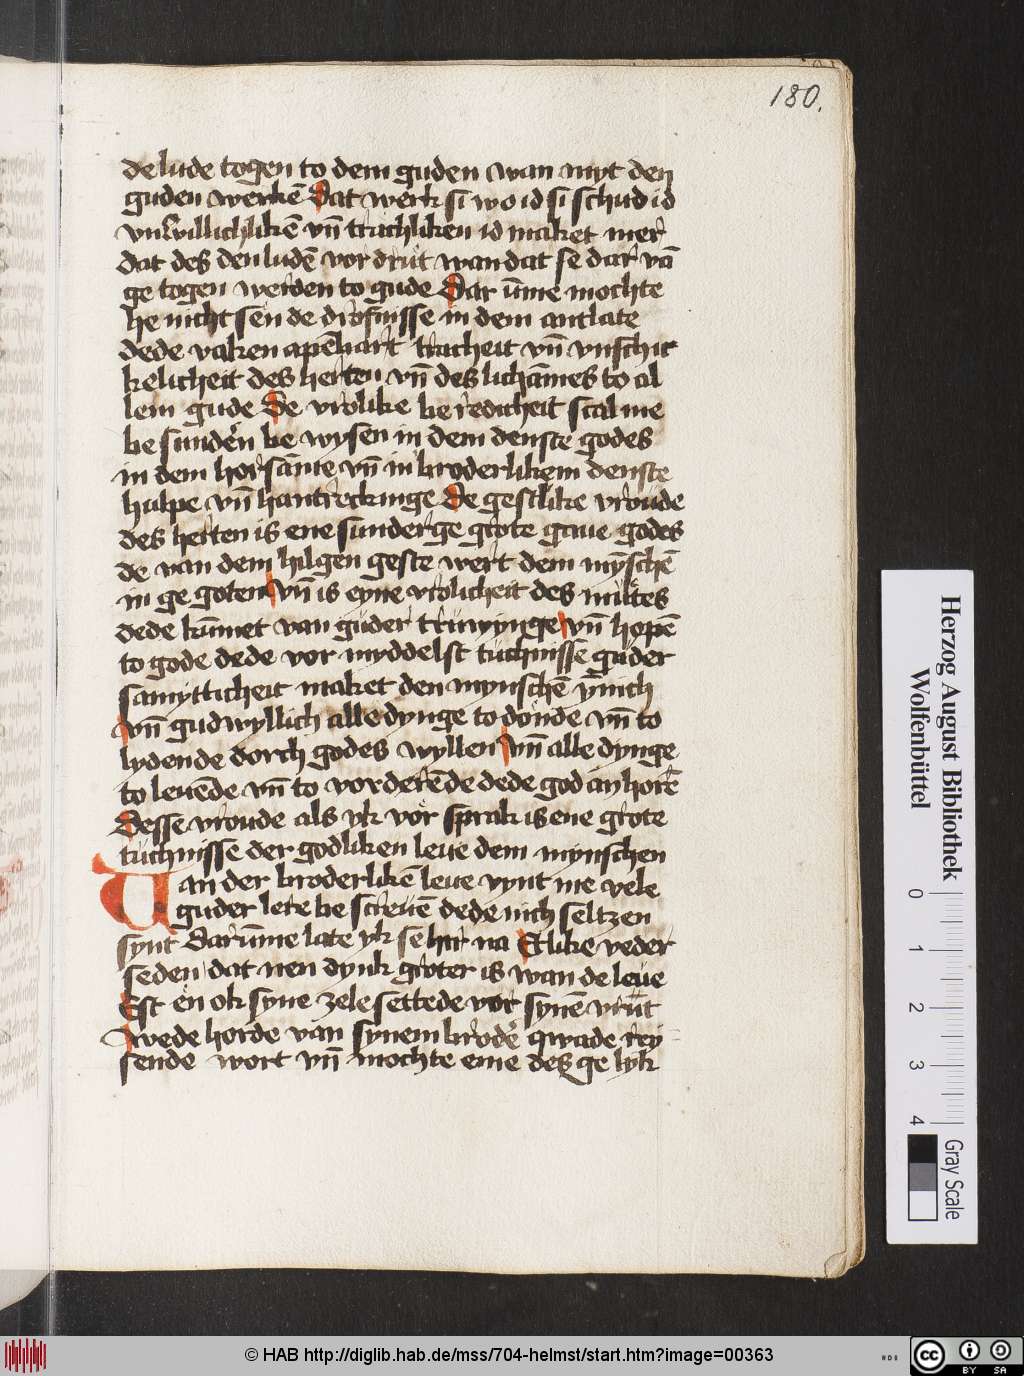 180.
de lude togen to dem guden wan myt den
guden werkē Dat werk si wo id si schud id
vnwillichlikē vn̄ trachliken id maket mer
dat des den ludē vordrut wan dat se dar vā
ge togen werden to gude Dar ūme mochte
he nicht sen de drofnisse in dem antlate
dede vaken apēbart tracheit vn̄ vnschic
kelicheit des herten vn̄ des lichāmes to al
lem gude De vrolike be redicheit scal me
be sunder be wysen in dem denste godes
in dem horsāme vn̄ in broderlikem denste
hulpe vn̄ hantreckinge De gestlike vroude
des herten is ene sunderge grote gaue godes
de van dem hilgen geste wert dem mȳschē
in ge goten vn̄ is eyne vrolicheit des mutes
dede kūmet van guder truwynge vn̄ hopē
to gode dede vor myddelst tuchnisse guder
samytticheit maket den mynschē ynich
vn̄ gudwyllich alle dynge to donde vn̄ to
lydende dorch godes wyllen vn̄ alle dynge
to leuēde vn̄ to vorderēde dede god an horē
Desse vroude als yk vor sprak is ene grote
tuchnisse der godliken leue dem mynschen
Uan der broderlikē leue vynt me vele
guder lere be screuē dede nich seltzen
synt Darūme late yk se hir na Etlike veder
seden dat nen dynk groter is wan de leue
Est en ok syne zele settede vor synē vrunt
wede horde van synem broder qwade rey-
sende wort vn̄ mochte eme des ge lyk
Herzog August Bibliothek
Wolfenbüttel
0 1 2 3 4
Gray Scale
© HAB http://diglib.hab.de/mss/704-helmst/start.htm?image=00363
cc BY SA